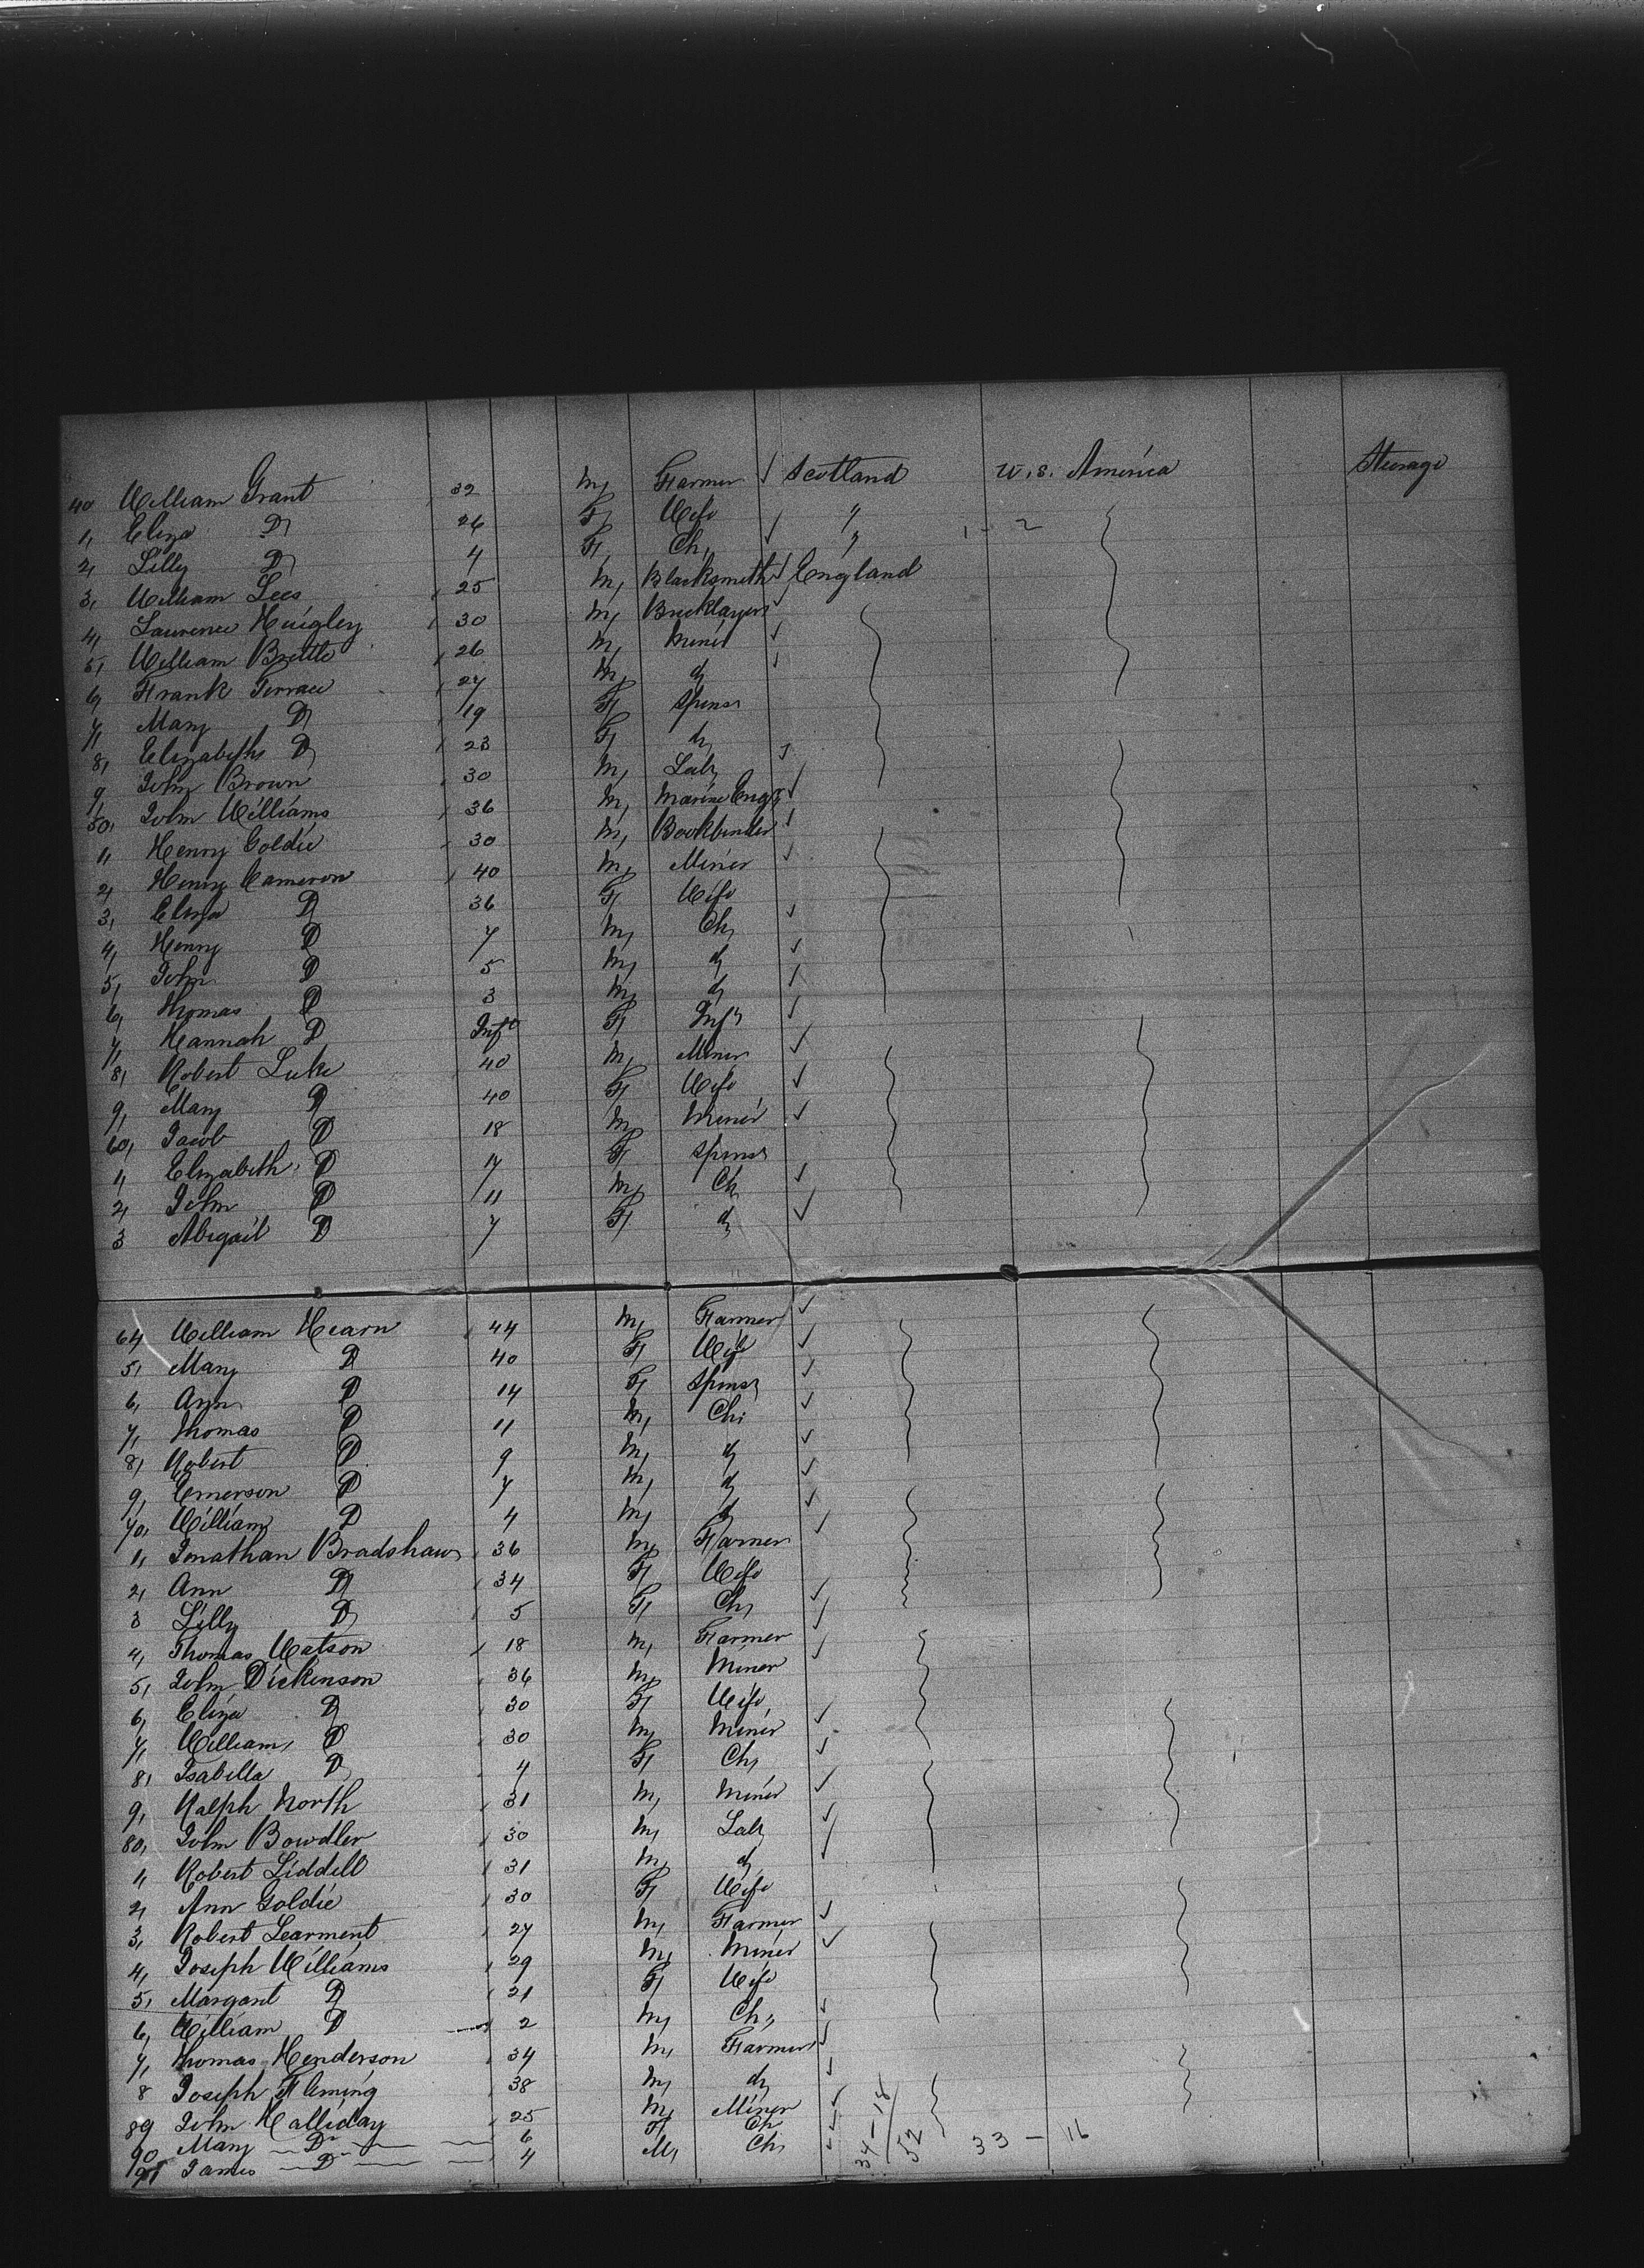 40 William Grant 32 M, Farmer Scotland U.S. America Steerage
1, Eliza D 26 F, Wife " 1 - 2
2, Lilly D 4 F, Ch, "
3, William Lees 25 M, Blacksmith England
4, Laurence 30 M, Bricklayer
5, William Brettle 26 M, Miner
6, Frank Terrace 27 M, d,
7, Mary D 19 F, Spinsr
8, Elizabeth D 23 F, d,
9, John Brown 30 M, Labr
50, John Williams 36 M, Marine Engr
1, Henry Goldie 30 M, Bookbinder
2, Henry Cameron 40 M, Miner
3, Eliza D 36 F, Wife
4, Henry D 7 M, Ch,
5, John D 5 M, d,
6, Thomas D 3 M, d,
7, Hannah D Inft F, Inft
8, Robert Luke 40 M, Miner
9, Mary D 40 F, Wife
60, Jacob D 18 M, Miner
1, Elizabeth D 17 F, Spinsr
2, John D 11 M, Ch
3 Abigail D 7 F, d,
64 William Hearn 44 M, Farmer
5, Mary D 40 F, Wife
6, Ann D 14 F, Spinsr
7, Thomas D 11 M, Ch,
8, Robert D 9 M, d,
9, Emerson D 7 M, d,
70, William D 4 M, d,
1, Jonathan Bradshaw 36 M, Farmer
2, Ann D 34 F, Wife
3 Lilly D 5 F, Ch,
4, Thomas Watson 18 M, Farmer
5, John Dickinson 36 M, Miner
6, Eliza D 30 F, Wife
7, William D 30 M, Miner
8, Isabella D 4 F, Ch,
9, Ralph North 31 M, Miner
80, John Bowdler 30 M, Labr
1, Robert Liddell 31 M, d,
2, Ann Goldie 30 F, Wife
3, Robert Learment 27 M, Farmer
4, Joseph Williams 29 M, Miner
5, Margaret D 21 F, Wife
6, William D 2 M, Ch,
7, Thomas Henderson 34 M, Farmer
8 Joseph Fleming 38 M, d,
89 John Halliday 25 M, Miner
90 Mary D 6 F, Ch
91 James D 4 M, Ch, 34 - 18 / 52 33 - 16